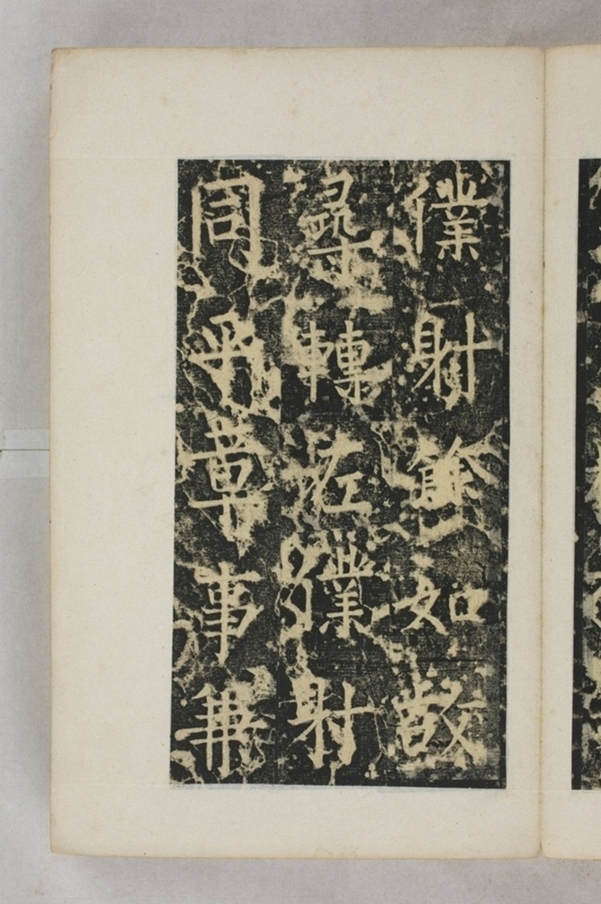 僕射餘如故
尋轉左僕射
同平章事兼